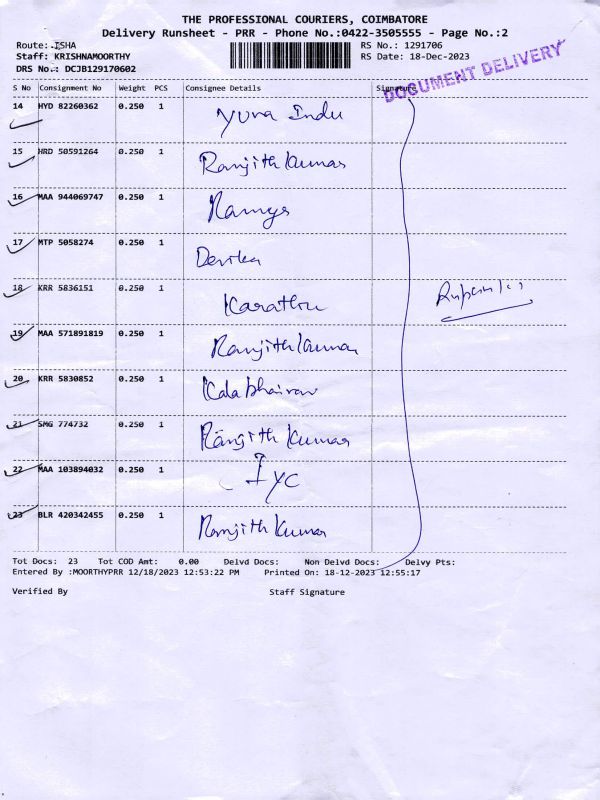 THE PROFESSIONAL COURIERS, COIMBATORE
Delivery Runsheet - PRR - Phone No.:0422-3505555 - Page No.:2
Route: ISHA
Staff: KRISHNAMOORTHY
DRS No.: DCJB129170602
RS No.: 1291706
RS Date: 18-Dec-2023
DOCUMENT DELIVERY
S No Consignment No Weight PCS Consignee Details Signature
14 HYD 82260362 0.250 1 Yuva Indu
15 HRD 50591264 0.250 1 Ranjith Kumar
16 MAA 944069747 0.250 1 Ramya
17 MTP 5058274 0.250 1 Devika
18 KRR 5836151 0.250 1
19 MAA 571891819 0.250 1 Ranjith Kumar
20 KRR 5830852 0.250 1 Kalabhairav
21 SMG 774732 0.250 1 Ranjith Kumar
22 MAA 103894032 0.250 1 IYC
23 BLR 420342455 0.250 1 Ranjith Kumar
Tot Docs: 23 Tot COD Amt: 0.00 Delvd Docs: Non Delvd Docs: Delvy Pts:
Entered By :MOORTHYPRR 12/18/2023 12:53:22 PM Printed On: 18-12-2023 12:55:17
Verified By Staff Signature